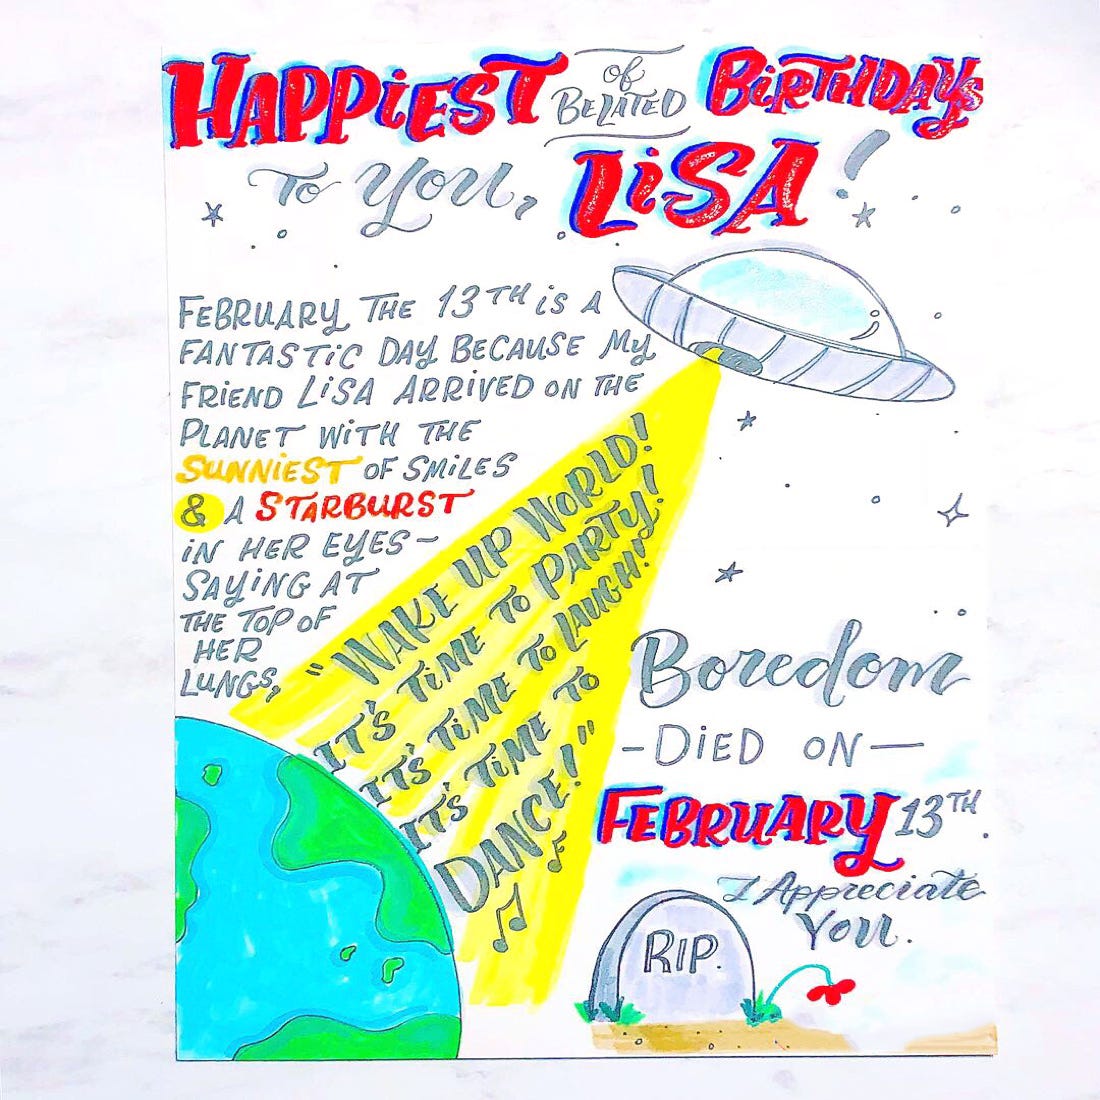 HAPPIEST of BELATED BIRTHDAYS
To You, LISA!
FEBRUARY THE 13TH IS A
FANTASTIC DAY BECAUSE MY
FRIEND LISA ARRIVED ON THE
PLANET WITH THE
SUNNIEST OF SMILES
& A STARBURST
IN HER EYES—
SAYING AT
THE TOP OF
HER
LUNGS,
"WAKE UP WORLD!
IT'S TIME TO PARTY!
IT'S TIME TO LAUGH!
IT'S TIME TO
DANCE!"
Boredom
—DIED ON—
FEBRUARY 13TH.
I Appreciate
You.
RIP.